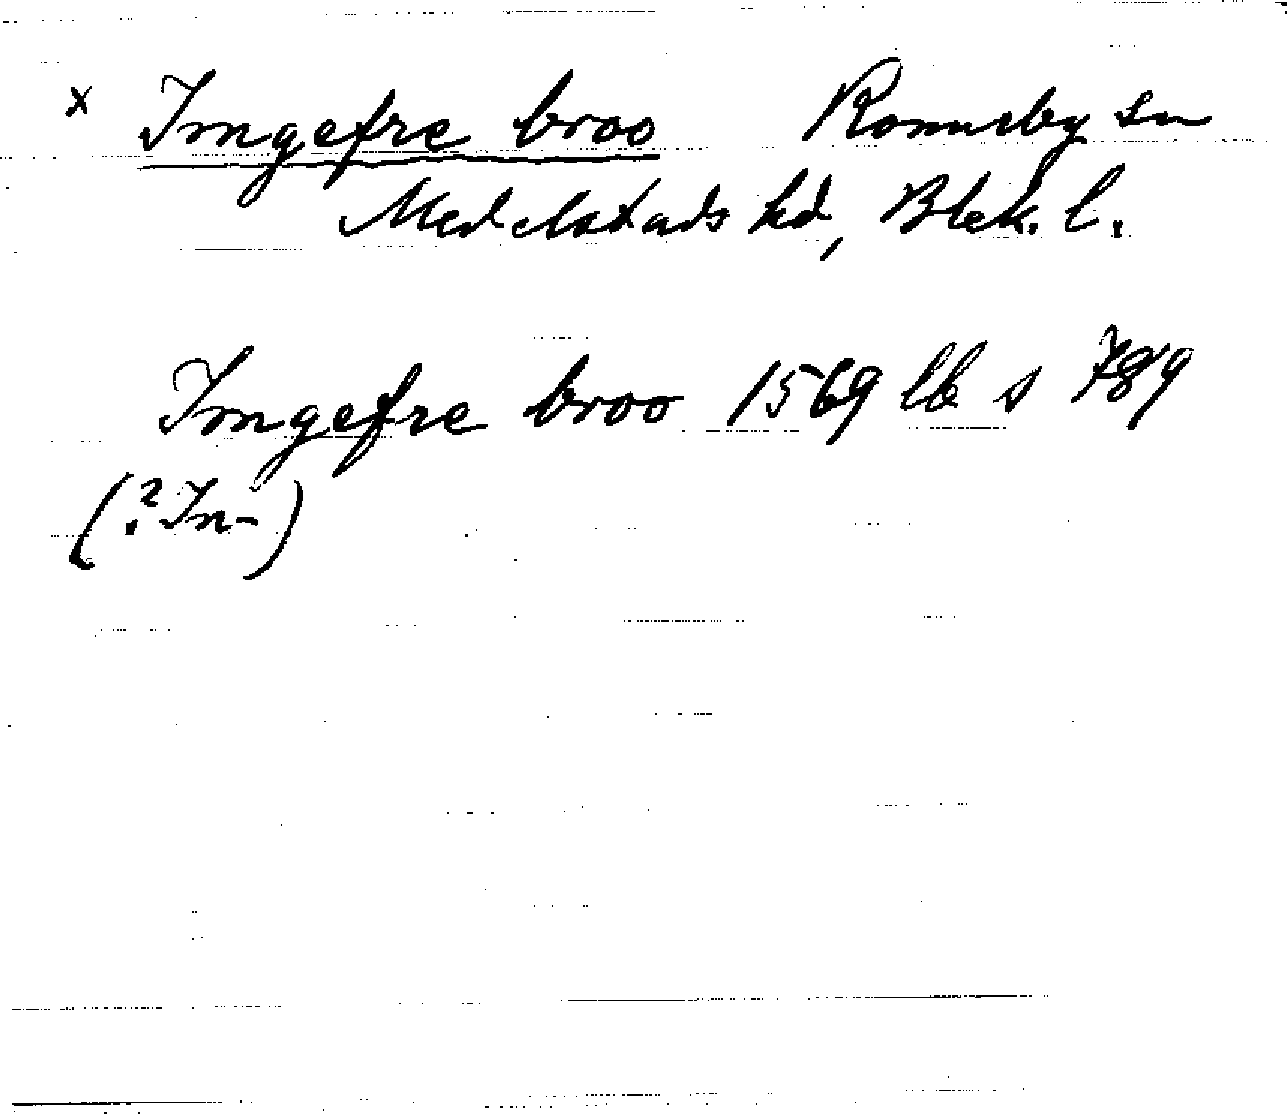 x Imgefre broo Ronneby sn
Medelstads hd, Blek. l.
Imgefre broo 1569 lb s 789
(? In-)